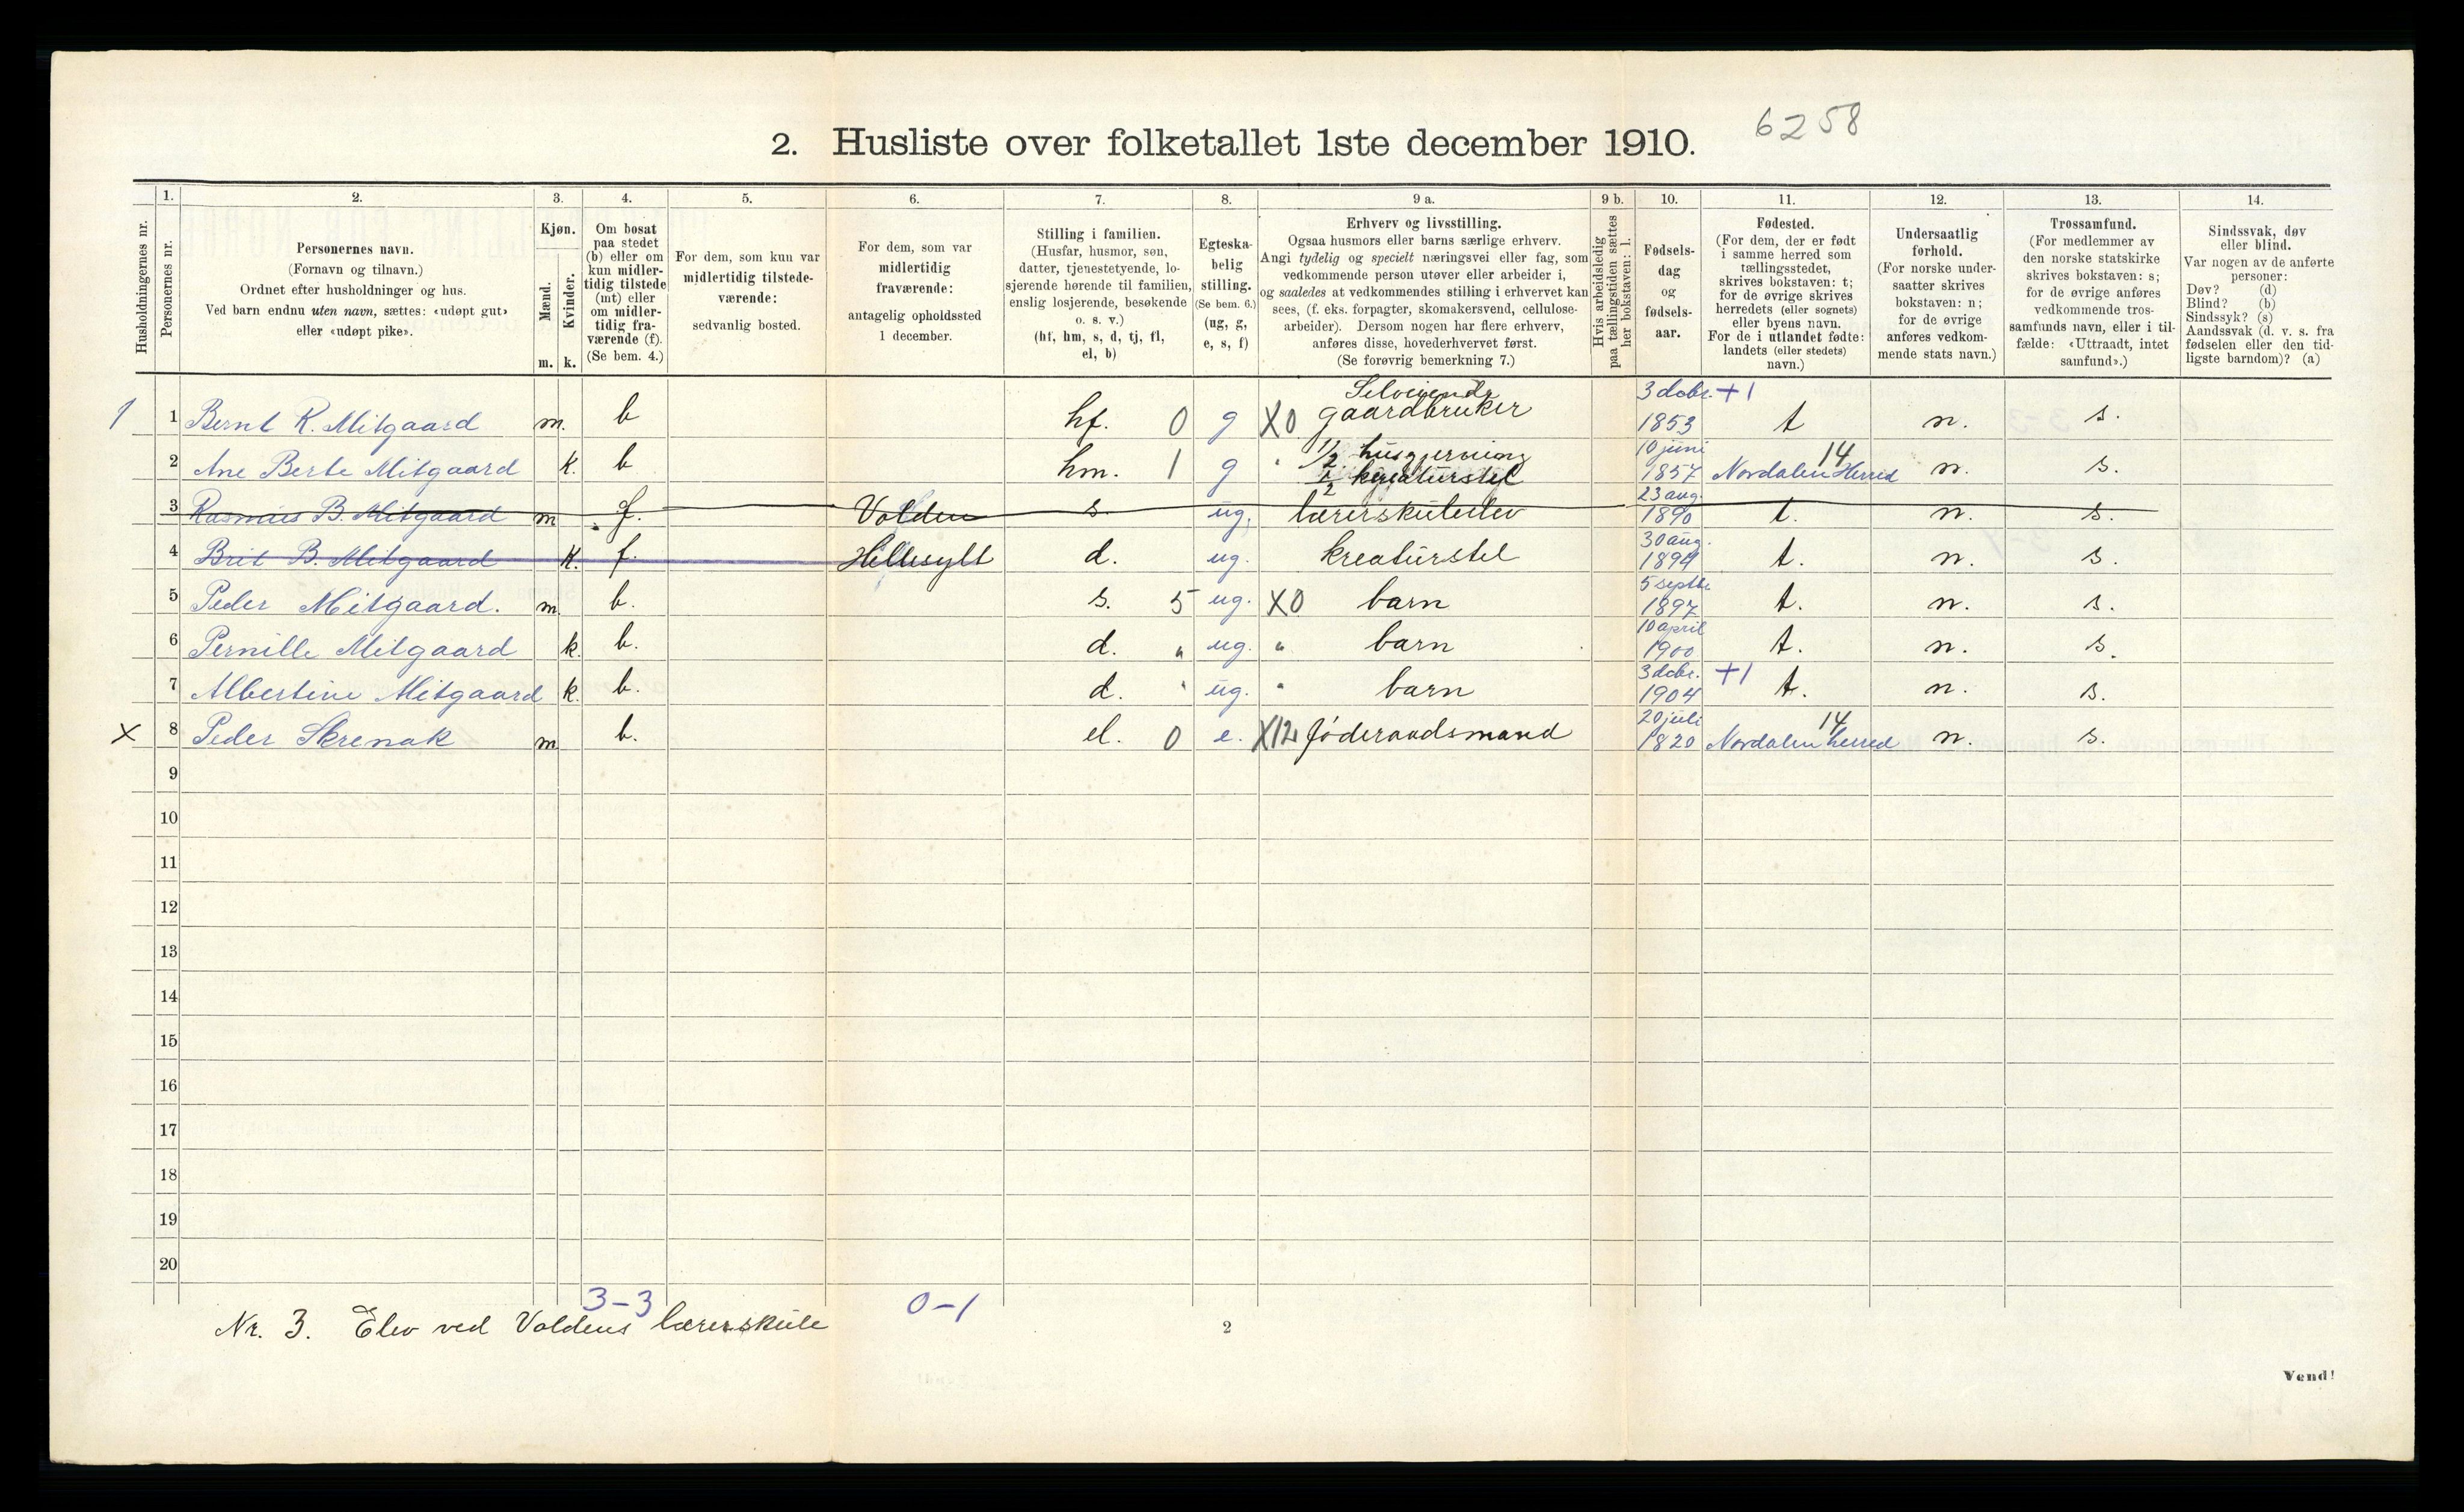 2. Husliste over folketallet 1ste december 1910.
6258
Husholdningernes nr.
1.
Personernes nr.
2.
Personernes navn.
(Fornavn og tilnavn.)
Ordnet efter husholdninger og hus.
Ved barn endnu uten navn, sættes: «udøpt gut»
eller «udøpt pike».
3.
Kjøn.
Mænd.
Kvinder.
m. k.
4.
Om bosat
paa stedet
(b) eller om
kun midler-
tidig tilstede
(mt) eller
om midler-
tidig fra-
værende (f).
(Se bem. 4.)
5.
For dem, som kun var
midlertidig tilstede-
værende:
sedvanlig bosted.
6.
For dem, som var
midlertidig
fraværende:
antagelig opholdssted
1 december.
7.
Stilling i familien.
(Husfar, husmor, søn,
datter, tjenestetyende, lo-
sjerende hørende til familien,
enslig losjerende, besøkende
o. s. v.)
(hf, hm, s, d, tj, fl,
el, b)
8.
Egteska-
belig
stilling.
(Se bem. 6.)
(ug, g,
e, s, f)
9 a.
Erhverv og livsstilling.
Ogsaa husmors eller barns særlige erhverv.
Angi tydelig og specielt næringsvei eller fag, som
vedkommende person utøver eller arbeider i,
og saaledes at vedkommendes stilling i erhvervet kan
sees, (f. eks. forpagter, skomakersvend, cellulose-
arbeider). Dersom nogen har flere erhverv,
anføres disse, hovederhvervet først.
(Se forøvrig bemerkning 7.)
9 b.
Hvis arbeidsledig
paa tællingstiden sættes
her bokstaven: l.
10.
Fødsels-
dag
og
fødsels-
aar.
11.
Fødested.
(For dem, der er født
i samme herred som
tællingsstedet,
skrives bokstaven: t;
for de øvrige skrives
herredets (eller sognets)
eller byens navn.
For de i utlandet fødte:
landets (eller stedets)
navn.)
12.
Undersaatlig
forhold.
(For norske under-
saatter skrives
bokstaven: n;
for de øvrige
anføres vedkom-
mende stats navn.)
13.
Trossamfund.
(For medlemmer av
den norske statskirke
skrives bokstaven: s;
for de øvrige anføres
vedkommende tros-
samfunds navn, eller i til-
fælde: «Uttraadt, intet
samfund».)
14.
Sindssvak, døv
eller blind.
Var nogen av de anførte
personer:
Døv? (d)
Blind? (b)
Sindssyk? (s)
Aandssvak (d. v. s. fra
fødselen eller den tid-
ligste barndom)? (a)
1 1 Bernt R. Mitgaard m. b hf. 0 g X0 Selveiende gaardbruker 3 dcbr. +1 1853 t n. s.
2 Ane Berte Mitgaard k. b hm. 1 g " 1/2 husgjerning 1/2 kreaturstel 10 juni 1857 Nordalen Herred 14 n. s.
3 Rasmus B. Mitgaard m f. Volden s. ug. lærerskuleelev 23 aug. 1890 t. n. s.
4 Brit B. Mitgaard k. f. Hellesylt d. ug. kreaturstel 30 aug. 1894 t. n. s.
5 Peder Mitgaard. m. b. s. 5 ug. X0 barn 5 septbr 1897 t. n. s.
6 Pernille Mitgaard k. b. d. " ug. " barn 10 april 1900 t. n. s.
7 Albertine Mitgaard k. b. d. " ug. " barn 3 dcbr. +1 1904 t. n. s.
X 8 Peder Skrenak m b. el. 0 e. X12 føderaadsmand 20 juli 1820 Nordalen herred 14 n. s.
9
10
11
12
13
14
15
16
17
18
19
20
3-3 0-1
Nr. 3. Elev ved Voldens lærerskule
2
Vend!